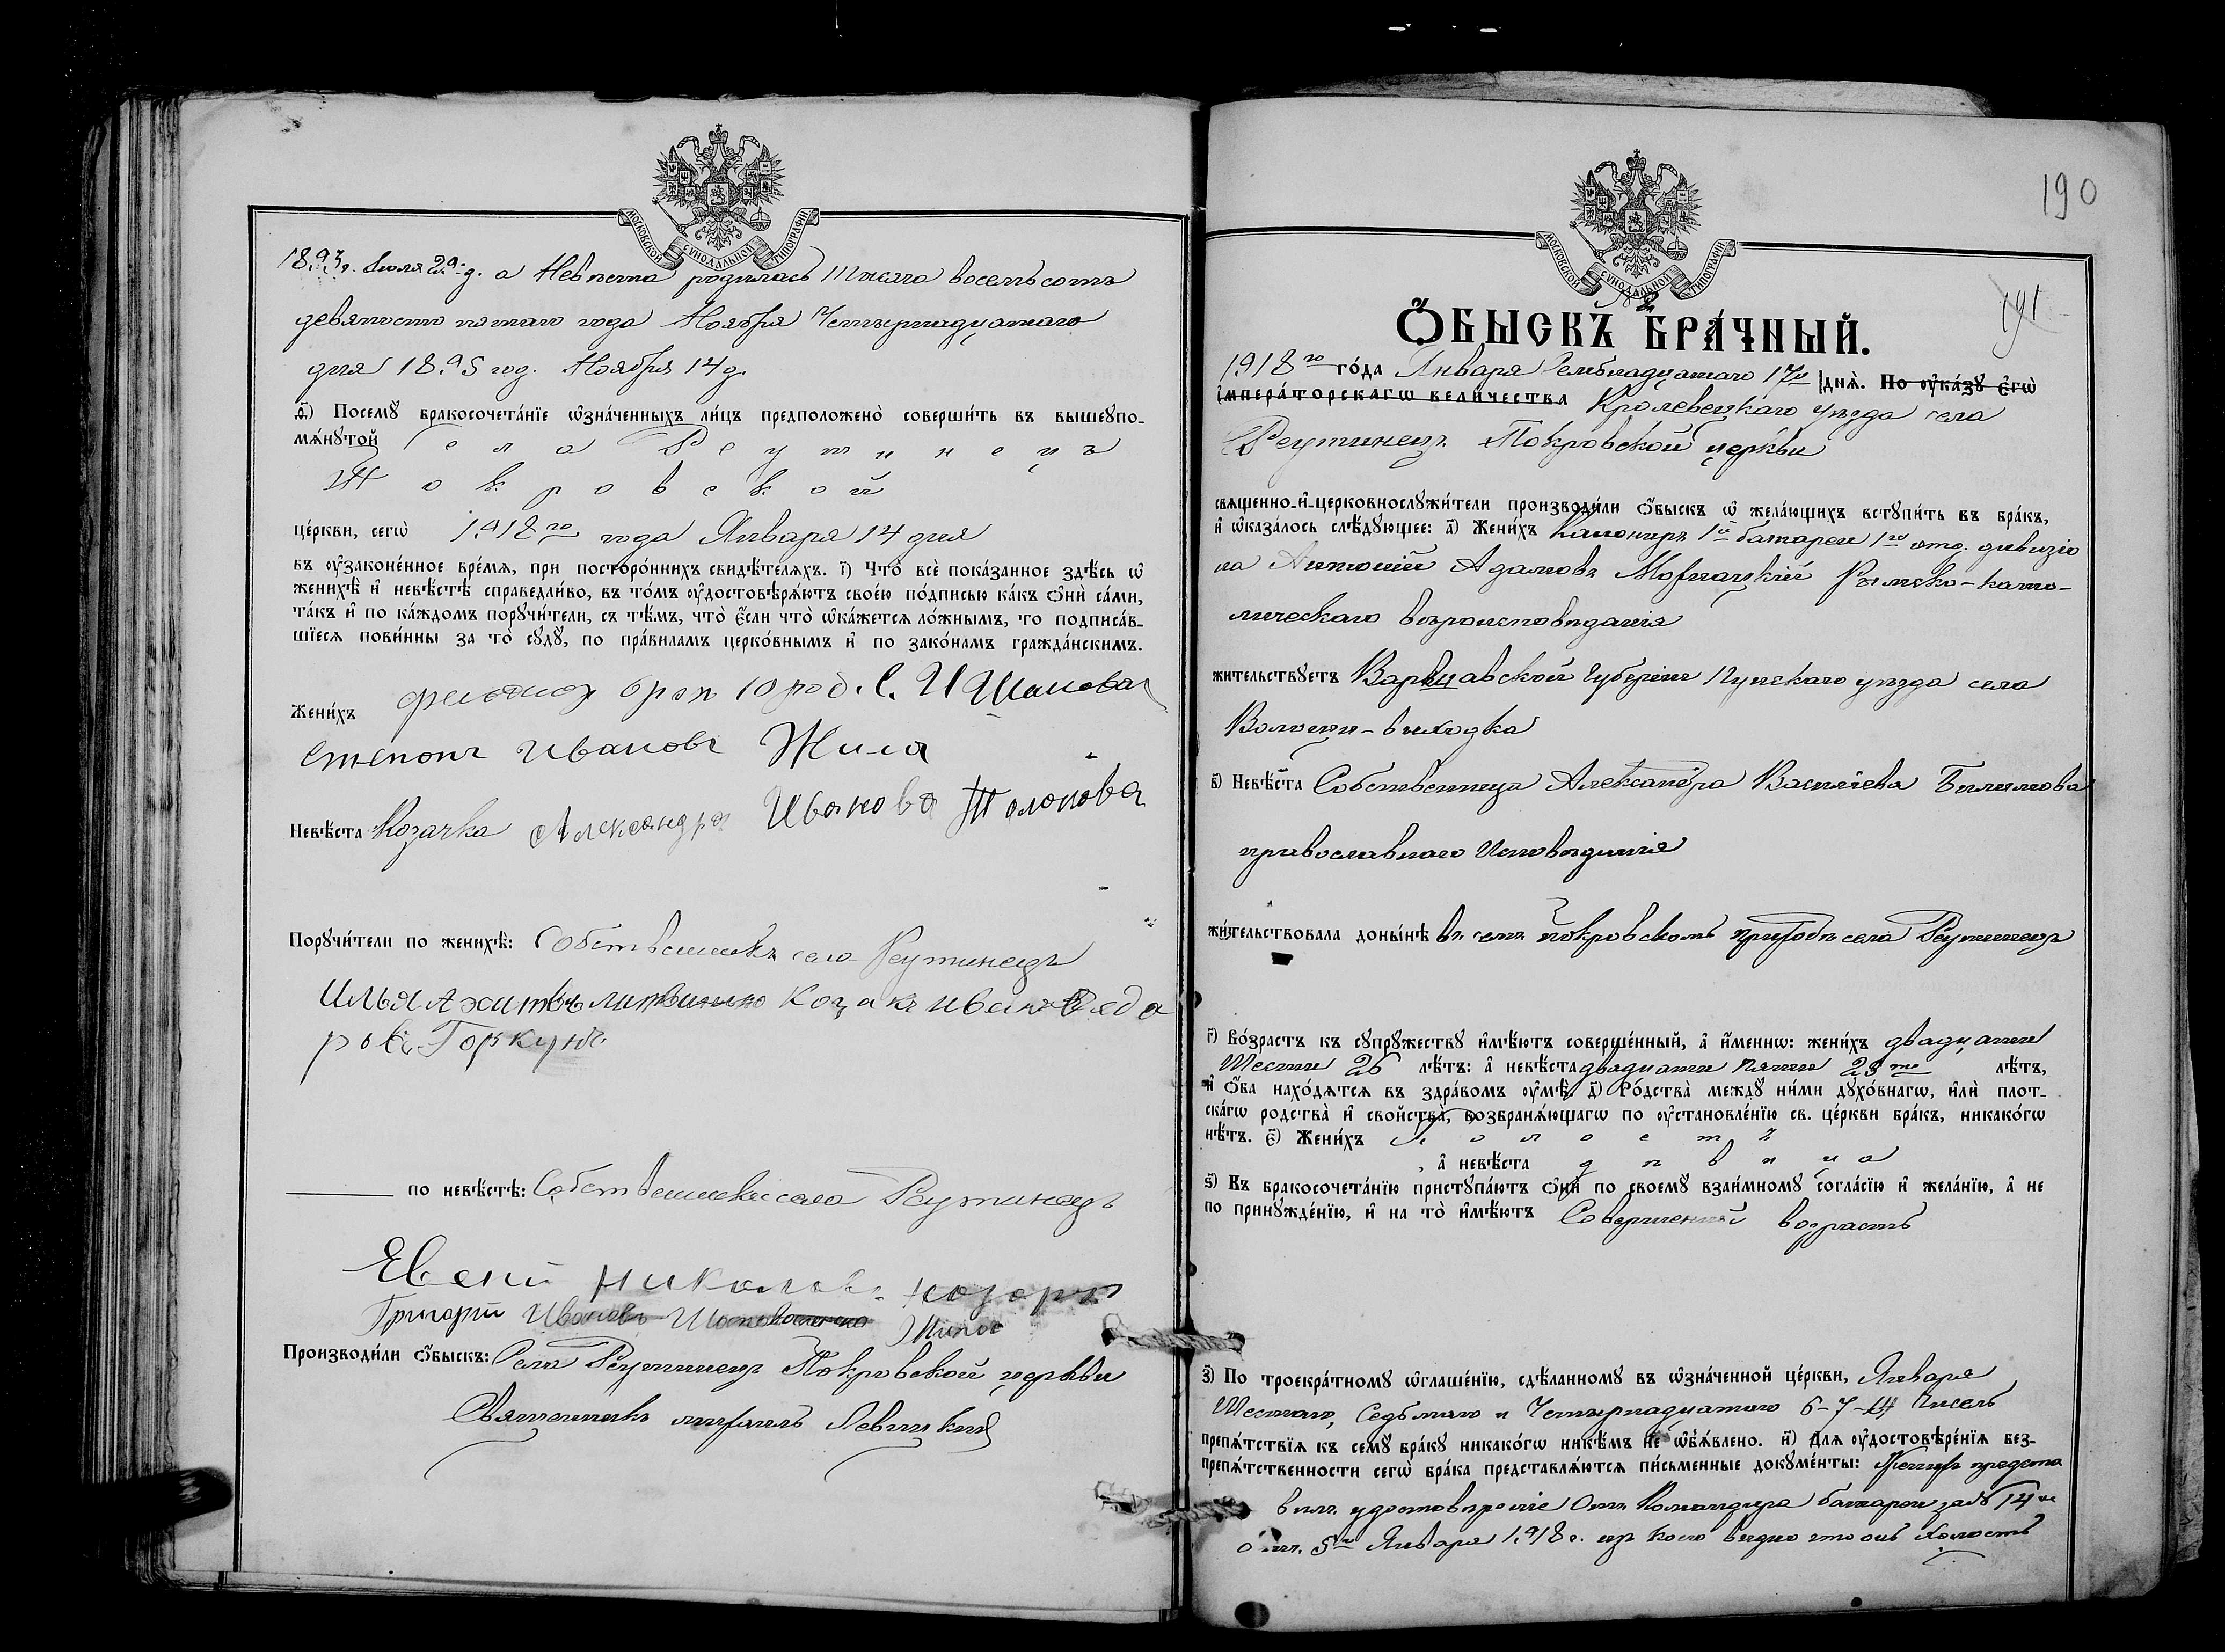 МОСКОВСКОЙ СѴНОДАЛЬНОЙ ТИПОГРАФІИ
1893 г. Июля 29 д. а Невѣста родилась Тысяча восемьсотъ
девяносто пятаго года Ноября Четырнадцатаго
дня 1895 год. Ноября 14 д.
ѳ҃) Посемꙋ̀ бракосочета́нїе ѡ҆зна́ченныхъ ли́цъ предположено̀ соверши́ть въ вышеꙋпо-
мѧ́нꙋтой Села Реутинецъ
Покровской
це́ркви, сегѡ̀ 1918го года Января 14 дня
въ ᲂу҆законе́нное вре́мѧ, при посторо́ннихъ свидѣ́телѧхъ. і҃) Что̀ всѐ пока́занное здѣ́сь ѡ҆
женихѣ̀ и҆ невѣ́стѣ справедли́во, въ то́мъ ᲂу҆достовѣрѧ́ютъ свое́ю по́дписью ка́къ ѻ҆нѝ са́ми,
та́къ и҆ по ка́ждомъ порꙋчи́тели, съ тѣ́мъ, что̀ є҆́сли что̀ ѡ҆ка́жетсѧ ло́жнымъ, то подписа́в-
шїесѧ пови́нны за то̀ сꙋдꙋ̀, по пра́виламъ церко́внымъ и҆ по зако́намъ гражда́нскимъ.
Жени́хъ
Степонъ Ивановъ Жила
Невѣ́ста Козачка Александра Иванова
Порꙋчи́тели по женихѣ̀: Собственникъ села Реутинецъ
Илья козакъ Иванъ Федо
ровъ Горкунъ
по невѣ́стѣ: Собственники села Реутинецъ
Евсей Николаевъ
Григорий Ивановъ
Производи́ли ѻ҆́быскъ: Села Реутинецъ Покровской церкви
Священникъ Левицкій
190
191
МОСКОВСКОЙ СѴНОДАЛЬНОЙ ТИПОГРАФІИ
Ѻ҆́БЫСКЪ БРА́ЧНЫЙ.
1918го го́да Января Семьнадцатаго 17го днѧ̀. По ᲂу҆ка́зꙋ є҆гѡ̀
і҆мпера́торскагѡ вели́чества Кролевецкаго уѣзда села
Реутинецъ Покровской церкви
свѧще́нно-и҆-церковнослꙋжи́тели производи́ли ѻ҆́быскъ ѡ҆ жела́ющихъ встꙋпи́ть въ бра́къ,
и҆ ѡ҆каза́лось слѣ́дꙋющее: а҃) Жени́хъ Канониръ 1й батареи 1го отд. дивизіо
на Антоній Адамовъ Римско-като-
лическаго вѣроисповѣданія
жи́тельствꙋетъ Варшавской Губерніи уѣзда села
в҃) Невѣ́ста Собственница Александра Васильева Билимова
православнаго Исповѣданія
жи́тельствовала доны́нѣ въ семъ Покровскомъ приходѣ села Реутинецъ
г҃) Во́зрастъ къ сꙋпрꙋ́жествꙋ и҆мѣ́ютъ соверше́нный, а҆ и҆́меннѡ: жени́хъ двадцати
Шести 26 лѣ́тъ: а҆ невѣ́ста двадцати пяти 25ти лѣ́тъ,
и҆ ѻ҆́ба нахо́дѧтсѧ въ здра́вомъ ᲂу҆мѣ̀. д҃) Ро́дства̀ междꙋ̀ ни́ми дꙋхо́внагѡ, и҆лѝ плот-
ска́гѡ родства̀ и҆ сво́йства̀, возбранѧ́ющагѡ по ᲂу҆становле́нїю св. це́ркви бра́къ, никако́гѡ
нѣ́тъ. є҃) Жени́хъ Холостъ
, а҆ невѣ́ста дѣвица
ѕ҃) Въ бракосочета́нїю пристꙋпа́ютъ ѻ҆нѝ по своемꙋ̀ взаи́мномꙋ согла́сїю и҆ жела́нїю, а҆ не
по принꙋжде́нїю, и҆ на то̀ и҆мѣ́ютъ Совершенный возрастъ
з҃) По троекра́тномꙋ ѡ҆глаше́нїю, сдѣ́ланномꙋ въ ѡ҆зна́ченной це́ркви, Января
Шестаго, Седьмаго и Четырнадцатаго 6-7-14 Чиселъ
препѧ́тствїѧ къ семꙋ̀ бра́кꙋ никако́гѡ никѣ́мъ не ѡ҆б̾ѧ́влено. и҃) Длѧ ᲂу҆достовѣре́нїѧ без-
препѧ́тственности сегѡ̀ бра́ка представлѧ́ютсѧ пи́сьменные докꙋме́нты: Женихъ предста
вилъ удостовѣреніе Отъ Командира батареи за № 14
отъ 5го Января 1918 г. изъ коего видно что онъ Холостъ